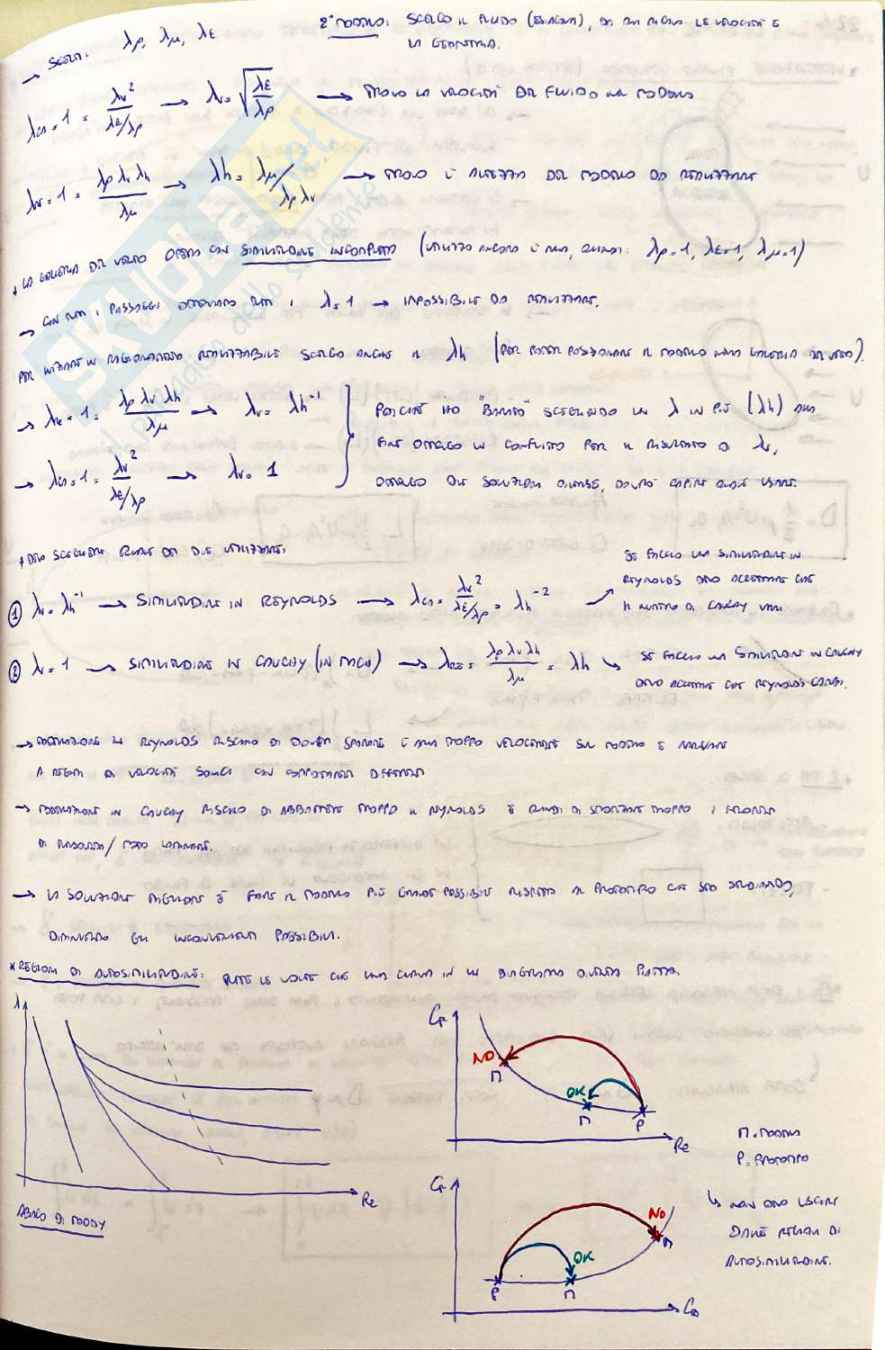 2° MODELLO: SCELGO IL FLUIDO (E ACQUA), DI CUI RICAVO LE VELOCITÀ E
LA GEOMETRIA.
→ SCELTI: λρ, λμ, λε
λca = 1 = λv² / λε/λρ → λv = √(λε/λρ) → TROVO LA VELOCITÀ DEL FLUIDO NEL MODELLO
λre = 1 = λρ λv λh / λμ → λh = λμ / λρ λv → TROVO L'ALTEZZA DEL MODELLO DA REALIZZARE
* LA GALLERIA DEL VENTO OPERA CON SIMILITUDINE INCOMPLETA (UTILIZZO ANCORA L'ARIA, QUINDI: λρ = 1, λε = 1, λμ = 1)
→ CON TUTTI I PASSAGGI OTTENIAMO TUTTI I λ = 1 → IMPOSSIBILE DA REALIZZARE.
PER INIZIARE UN RAGIONAMENTO REALIZZABILE SCELGO ANCHE IL λh (PER POTER POSIZIONARE IL MODELLO NELLA GALLERIA DEL VENTO).
→ λre = 1 = λρ λv λh / λμ → λv = λh⁻¹
→ λca = 1 = λv² / λε/λρ → λv = 1
POICHÉ HO "BARATO" SCEGLIENDO UN λ IN PIÙ (λh) ALLA
FINE OTTENGO UN CONFLITTO PER IL RISULTATO DI λv,
OTTENGO DUE SOLUZIONI DIVERSE, DOVRÒ CAPIRE QUALE USARE.
* DEVO SCEGLIERE QUALE DEI DUE UTILIZZARE:
① λv = λh⁻¹ → SIMILITUDINE IN REYNOLDS → λca = λv² / λε/λρ = λh⁻²
SE FACCIO UNA SIMILITUDINE IN
REYNOLDS DEVO ACCETTARE CHE
IL NUMERO DI CAUCHY VARI
② λv = 1 → SIMILITUDINE IN CAUCHY (IN MACH) → λRe = λρ λv λh / λμ = λh
SE FACCIO UNA SIMILITUDINE IN CAUCHY
DEVO ACCETTARE CHE REYNOLDS CAMBI.
→ SIMILITUDINE IN REYNOLDS RISCHIO DI DOVER SPARARE L'ARIA TROPPO VELOCEMENTE SUL MODELLO E ARRIVARE
A REGIMI DI VELOCITÀ SONICI CON COMPORTAMENTI DIFFERENTI
→ SIMILITUDINE IN CAUCHY RISCHIO DI ABBATTERE TROPPO IL REYNOLDS E QUINDI DI SPOSTARE TROPPO I
DI / MOTO LAMINARE.
→ LA SOLUZIONE MIGLIORE È FARE IL MODELLO PIÙ GRANDE POSSIBILE RISPETTO AL PROTOTIPO CHE STO STUDIANDO,
DIMINUENDO GLI INCONVENIENTI POSSIBILI.
* REGIONI DI AUTOSIMILITUDINE: TUTTE LE VOLTE CHE UNA CURVA IN UN DIAGRAMMA DIVENTA PIATTA.
λ
Re
ABACO DI MOODY
CF
NO
M
OK
M
P
Re
M = MODELLO
P = PROTOTIPO
CF
NO
M
OK
P
M
Ca
↳ NON DEVO USCIRE
DALLE REGIONI DI
AUTOSIMILITUDINE.
SKUOLA.net